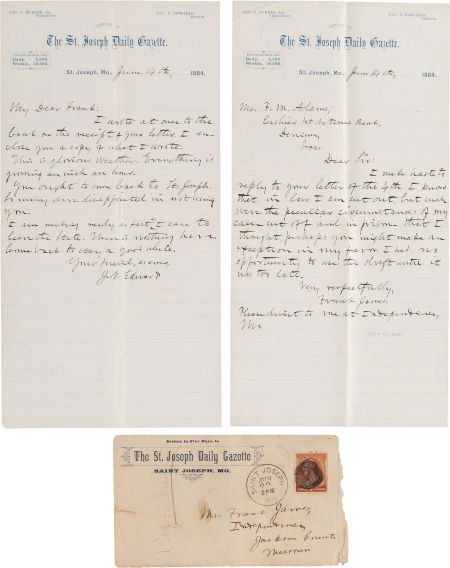 JAS. N. BURNES, JR.
President.
OFFICE OF
JNO. N. EDWARDS,
Editor.
The St. Joseph Daily Gazette.
ESTABLISHED 1845.
Daily,
Weekly,
St. Joseph, Mo., June 14th, 1884.
My Dear Frank:
I wrote at once to the
bank on the receipt of your letter. I en-
close you a copy of what I wrote.
This is glorious weather. Everything is
growing an inch an hour.
You ought to come back to St. Joseph.
So many were disappointed in not seeing
you.
I am making ready as fast I can to
leave the State. When a nothing here
come back to okay a good while.
Your friend, always
J. N. Edwards
JAS. N. BURNES, JR.
President.
OFFICE OF
JNO. N. EDWARDS,
Editor.
The St. Joseph Daily Gazette.
ESTABLISHED 1845.
Daily,
Weekly,
St. Joseph, Mo., June 14th, 1884.
Mr. F. M. Adams,
Cashier 1st National Bank,
Denison,
Texas
Dear Sir:
I make haste to
reply to your letter of the 4th. I know
that in law I am cut out, but such
were the peculiar circumstances of my
case cut off and in prison that I
thought perhaps you might make an
exception in my favor. I had no
opportunity to use the draft until it
was too late.
Very respectfully,
Frank James
Please direct to me at Independence,
Mo.
NOT FRANKS
Return in Five Days, to
The St. Joseph Daily Gazette
SAINT JOSEPH, MO.
SAINT JOSEPH
JUN
20
2PM
Mr. Frank James
Independence
Jackson County
Missouri